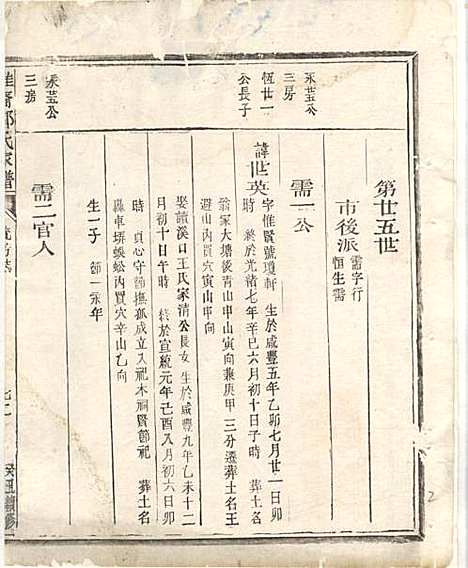 第廿五世
市後派
需字行
恒生需
需一公
永茎公
三房
恆廿一
公長子
諱世英
字惟賢號瓊軒 生於咸豐五年乙卯七月廿一日卯
時 終於光緒七年辛巳六月初十日子時 葬土名
翁家大塘後青山申山寅向兼庚甲三分遷葬土名王
迴山內買穴寅山申向
娶讀溪口王氏家清公長女 生於咸豐九年乙未十二
月初十日午時 終於宣統元年己酉八月初六日卯
時 貞心守節撫孤成立入祀本祠賢節祀 葬土名
轟車塝蜈蚣內買穴辛山乙向
生一子 節一永年
需二官人
永茎公
三房
氏家譜
七二
癸丑續修
2